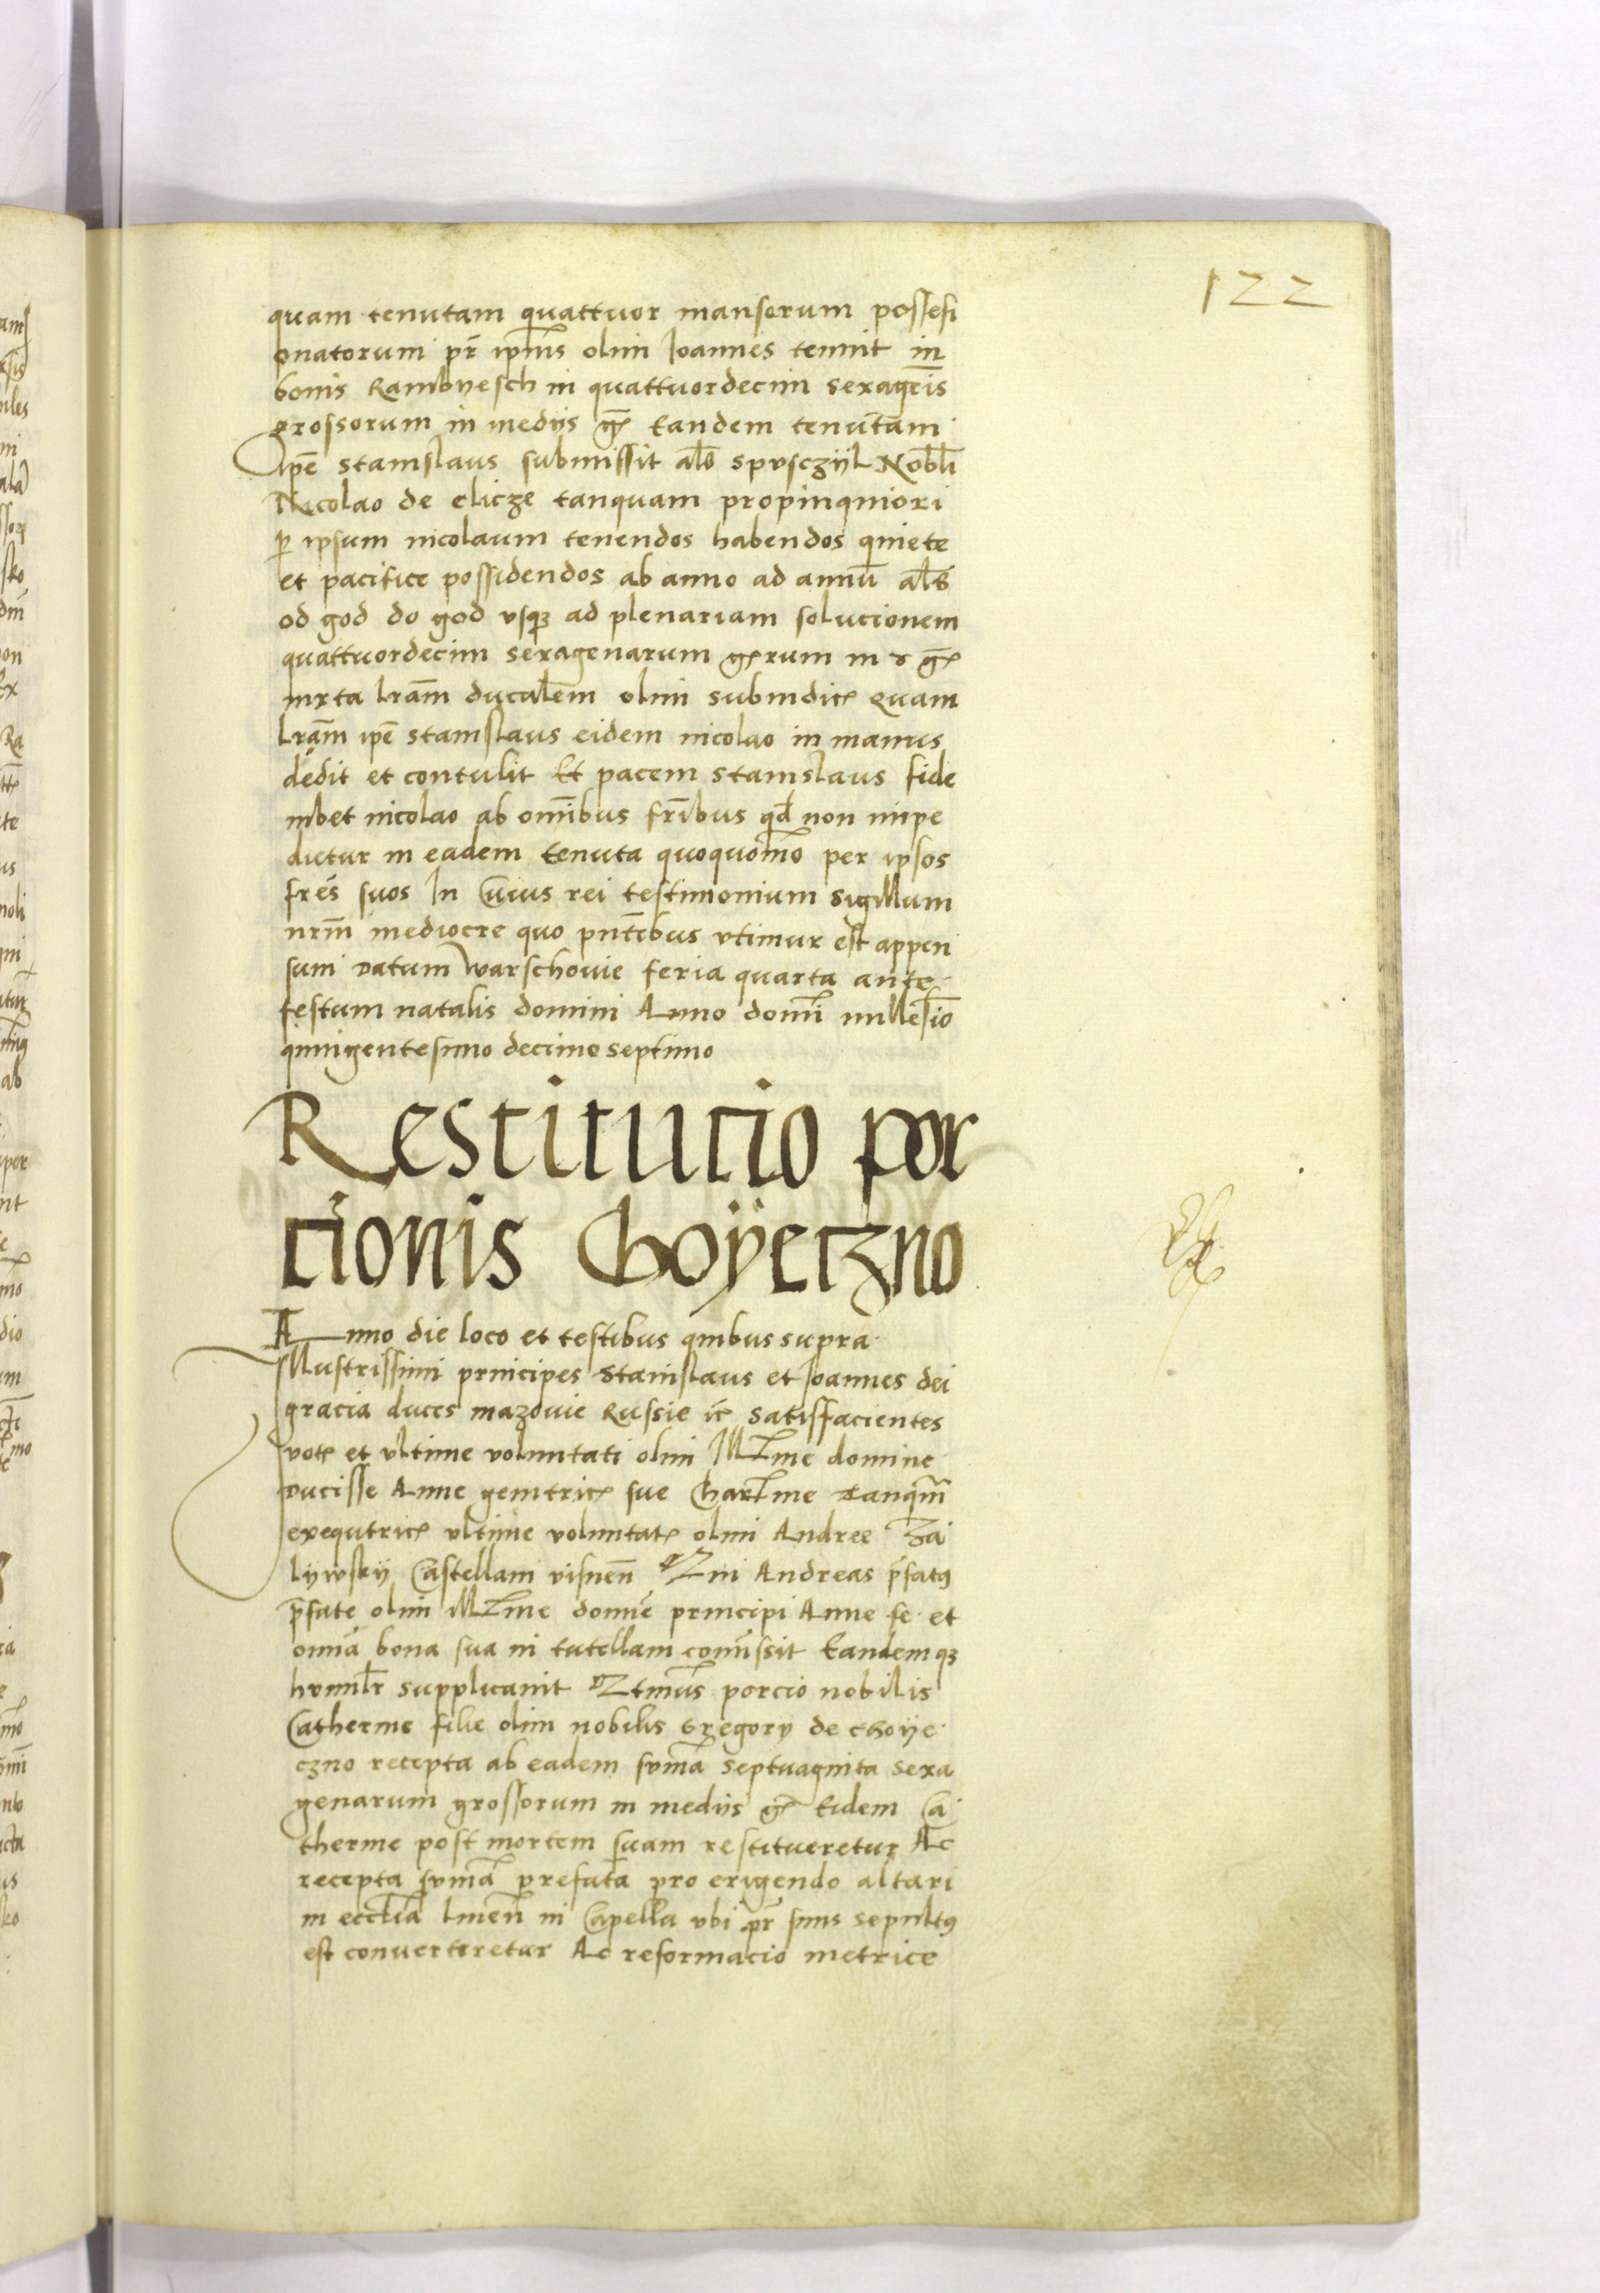 122
quam tenutam quattuor mansorum possesi
onatorum pr̃ ipi͂us olim Ioannes tenuit in
bonis Rambyesch in quattuordecim sexagẽis
grossorum in medys g̃ tandem tenutam
ip̃e stanislaus submissit al̃s spvsczyl Nobl̃i
Nicolao de elicze tanquam propinquiori
p ipsum nicolaum tenendos habendos quiete
et pacifice possidendos ab anno ad annũ al̃s
od god do god vsqȝ ad plenariam solucionem
quattuordecim sexagenarum grum in r g̃
iuxta l̃ram ducalem olim subindic Quam
l̃ram ip̃e stanislaus eidem nicolao in manus
dedit et contulit Et pacem stanislaus fide
iubet nicolao ab om̃ibus fr̃ibus qd̃ non impe
dietur in eadem tenuta quoquom̃o per ipsos
fr̃es suos In Cuius rei testimonium sigillum
nr̃m mediocre quo pñtibus vtimur est appen
sum Datum Warschouie feria quarta ante
festum natalis domini Anno domĩ millesĩo
quingentesimo decimo septimo
Restitucio por
cionis Choÿeczno
Anno die loco et testibus quibus supra
Illustrissimi principes Stanislaus et Ioannes dei
gracia duces mazouie Russie ic̃ satisfacientes
vote et vltime voluntati olim Ill̃me domine
Ducisse Anne genitric sue Char̃me Tanqm̃
exequtric vltime voluntat olim Andree Za
lywsky Castellani visneñ Qui Andreas p̃fatꝰ
p̃fate olim Ill̃me domĩe principi Anne se et
omĩa bona sua in tutellam com̃issit tandemqȝ
humil̃r supplicauit Qtinus porcio nobilis
Catherine filie olim nobilis Gregory de choÿe
czno recepta ab eadem sum̃a septuaginta sexa
genarum grossorum in medys g̃ eidem Ca
therine post mortem suam restitueretur Ac
recepta sum̃a prefata pro erigendo altari
in eccl̃ia lineñ in Capella vbi pr̃ suus sepultꝰ
est conuerteretur Ac reformacio metrice